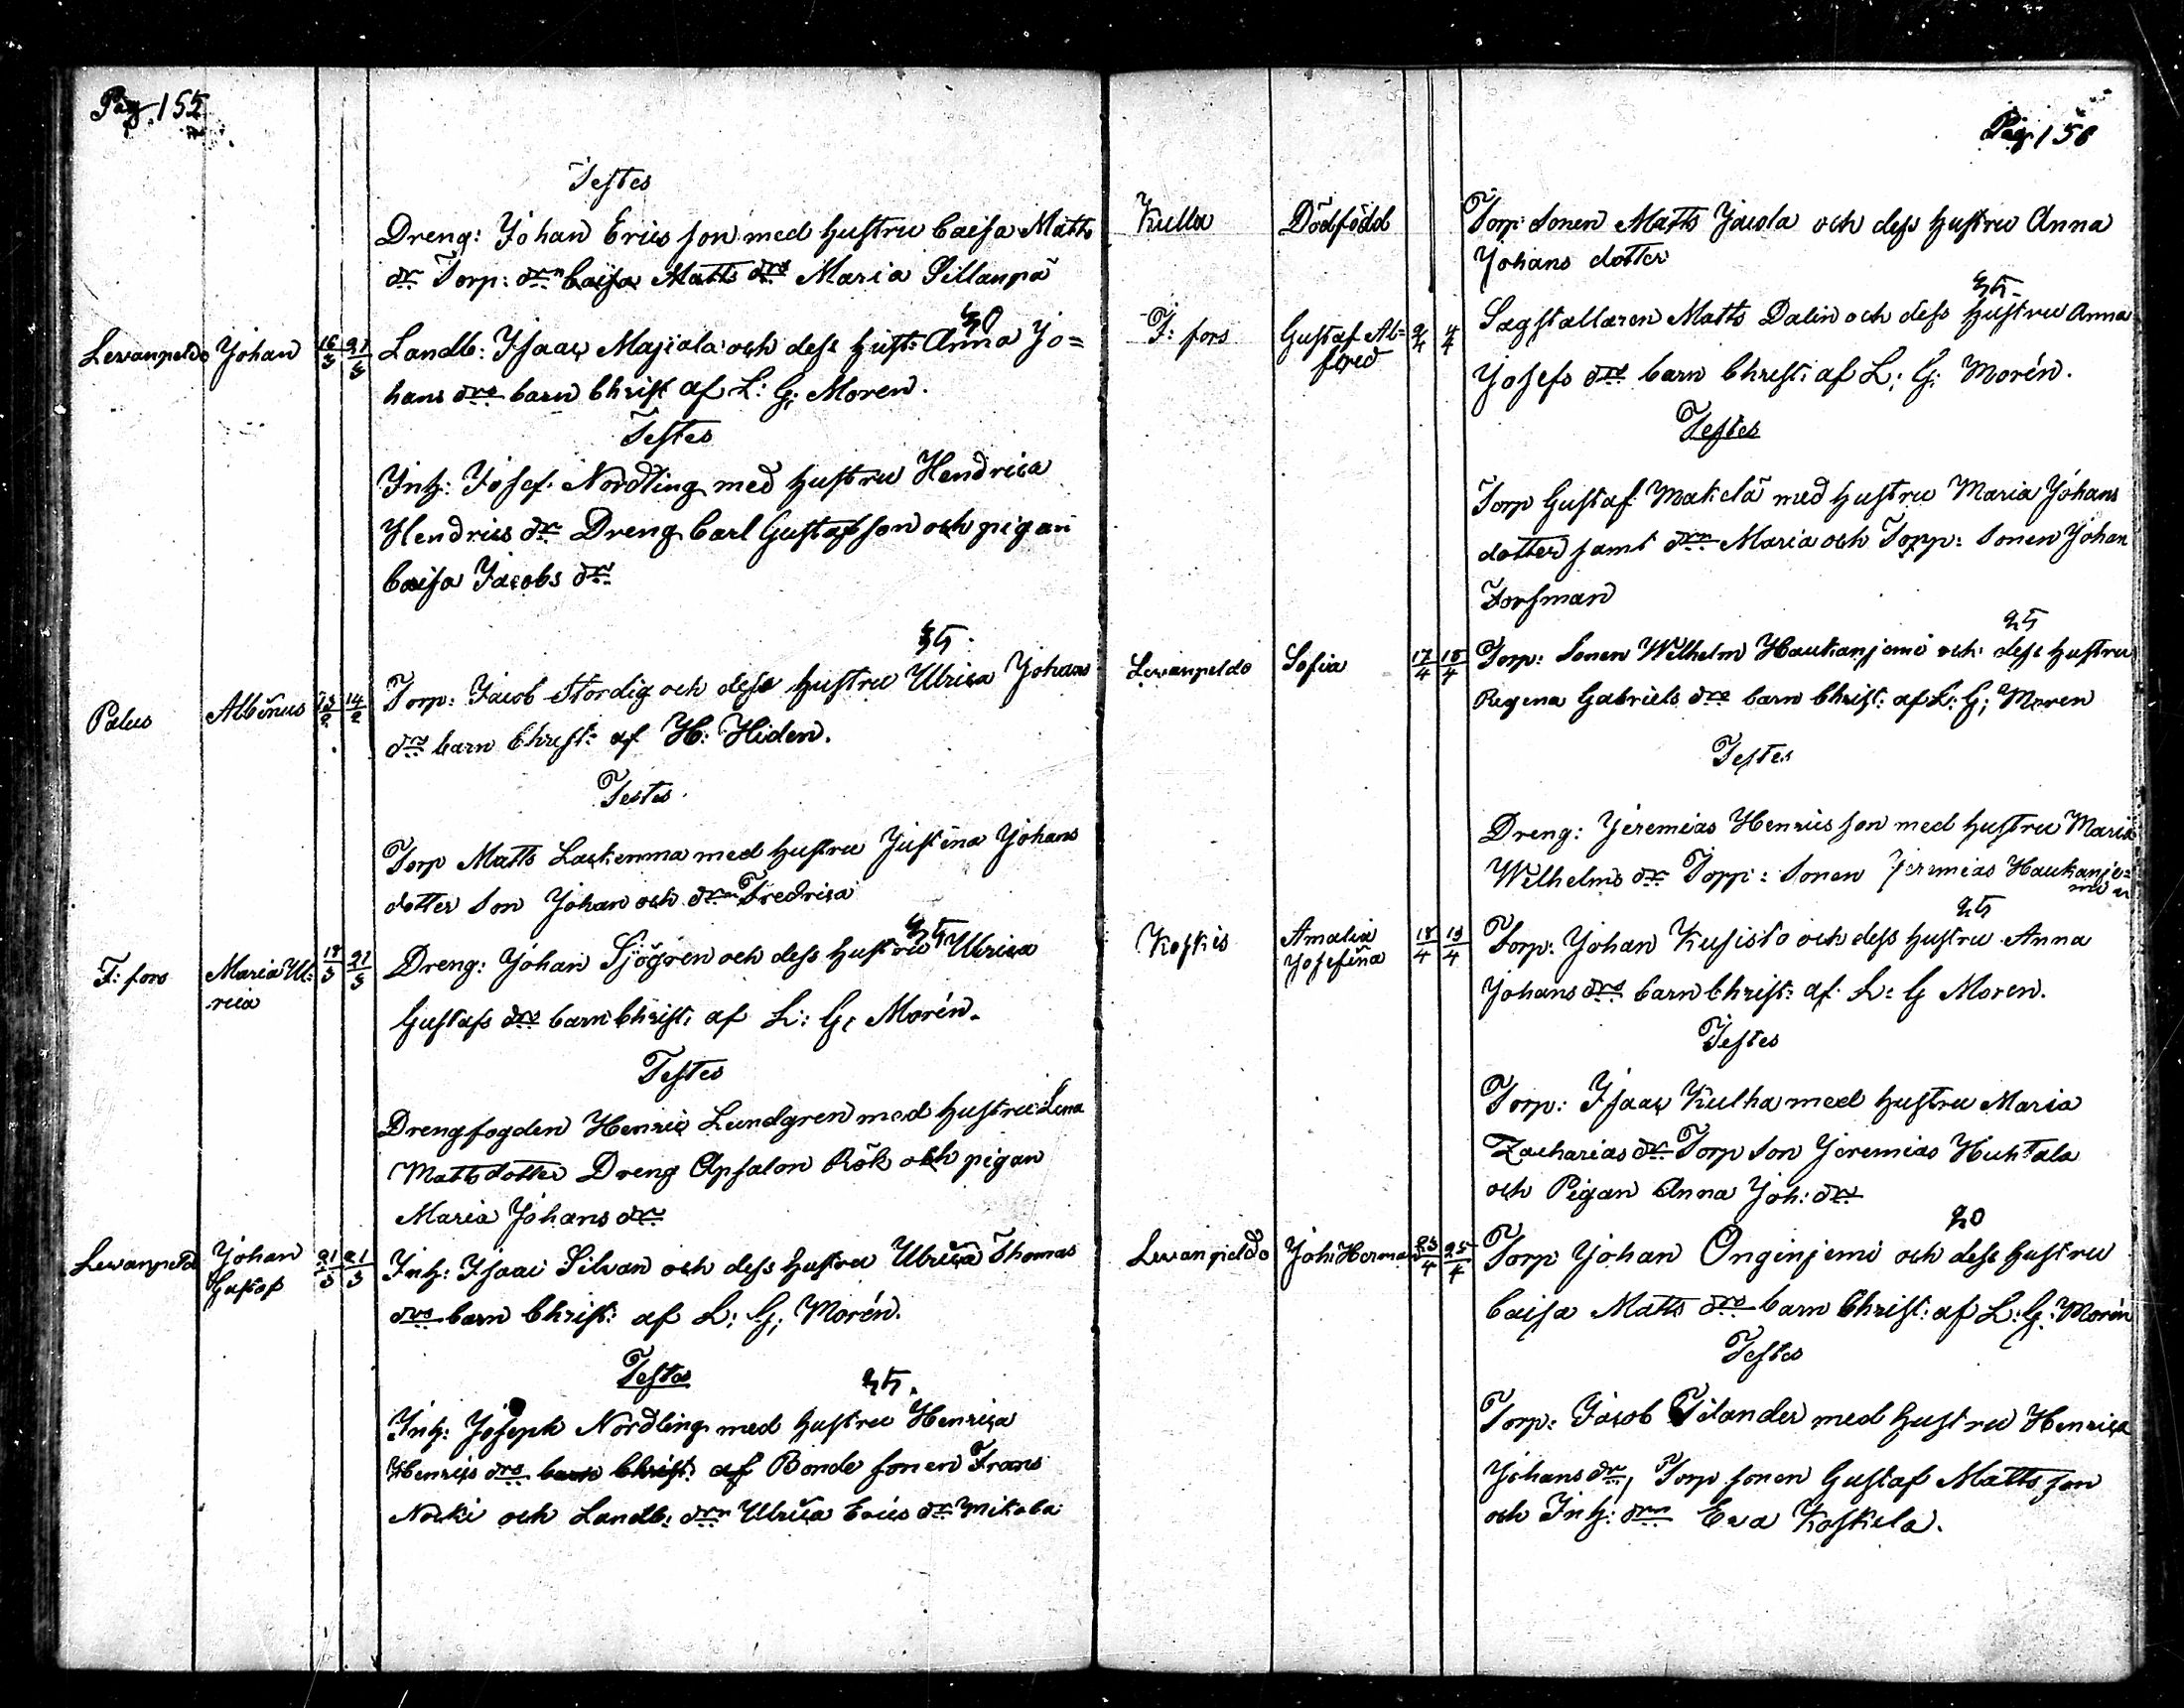 Pag. 155
Testes
Dreng: Johan Erics son med hustru Caisa Matts
dr Torp: drn Caisa Matts drs Maria Sillanpä
40
Lewanpeldo Johan 16/3 21/3 Landb: Isaac Majiala och dess hust: Anna Jo=
hans drs barn Christ af L: G: Moren.
Testes
Inh: Josef Nordling med hustru Hendrica
Hendrics dr Dreng Carl Gustafson och pigan
Caisa Jacobs dr
35.
Palus Albinus 13/2 14/2 Torp: Jacob Stordig och dess hustru Ulrica Johans
drs barn Christ: af H: Hiden.
Testes.
Torp Matts Lackemma med hustru Justina Johans
dotter Son Johan och drn Fredrica
F: fors Maria Ul= 19/3 21/3 Dreng: Johan Sjögren och dess hustru Ulrica
rica
Gustafs drs barn Christ: af L: G: Morén.
Testes
Drengfogden Henric Lundgren med hustru Lena
Mattsdotter Dreng Apsalon Rök och pigan
Maria Johans dr
Lewanpeld Johan 21/3 21/3 Inh: Isaac Silvan och dess hustru Ulrica Thomas
Gustaf
drs barn Christ: af L: G: Morén.
Testes
25.
Inh: Joseph Nordling med hustru Henrica
Henrics drs barn Christ: af Bonde sonen Frans
Nocki och Landb: drn Ulrica Erics dr Mikola
Pag. 156
Kulla Dödfödd Torp: Sonen Matts Jacola och dess hustru Anna
Johans dotter
35.
F: fors Gustaf Al= 2/4 4/4 Sagställaren Matts Dalin och dess hustru Anna
fred
Josefs drs barn Christ: af L: G: Morén.
Testes
Torp Gustaf Makelä med hustru Maria Johans
dotter samt drn Maria och Torp: Sonen Johan
Forsman
25
Lewanpeldo Sofia 17/4 18/4 Torp: Sonen Wilhelm Haukanjemi och dess hustru
Regina Gabriels drs barn Christ: af L: G: Moren
Testes
Dreng: Jeremias Henricsson med hustru Maria
Wilhelms dr Torp: Sonen Jeremias Haukanje=
mi
25
Koskis Amalia 18/4 19/4 Torp: Johan Kusisto och dess hustru Anna
Josefina
Johans drs barn Christ: af L: G Moren.
Testes
Torp: Isaac Kulha med hustru Maria
Zacharias dr Torp Son Jeremias Huhtala
och Pigan Anna Joh: dr
20
Lewanpeldo Joh: Herman 23/4 25/4 Torp Johan Onginjemi och dess hustru
Caisa Matts drs barn Christ: af L: G: Morén
Testes
Torp: Jacob Tilander med hustru Henrica
Johans dr, Torp sonen Gustaf Mattsson
och Inh: drn Eva Koskela.